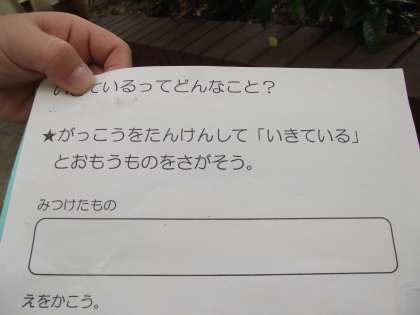 いきているってどんなこと？
★がっこうをたんけんして「いきている」
とおもうものをさがそう。
みつけたもの
えをかこう。